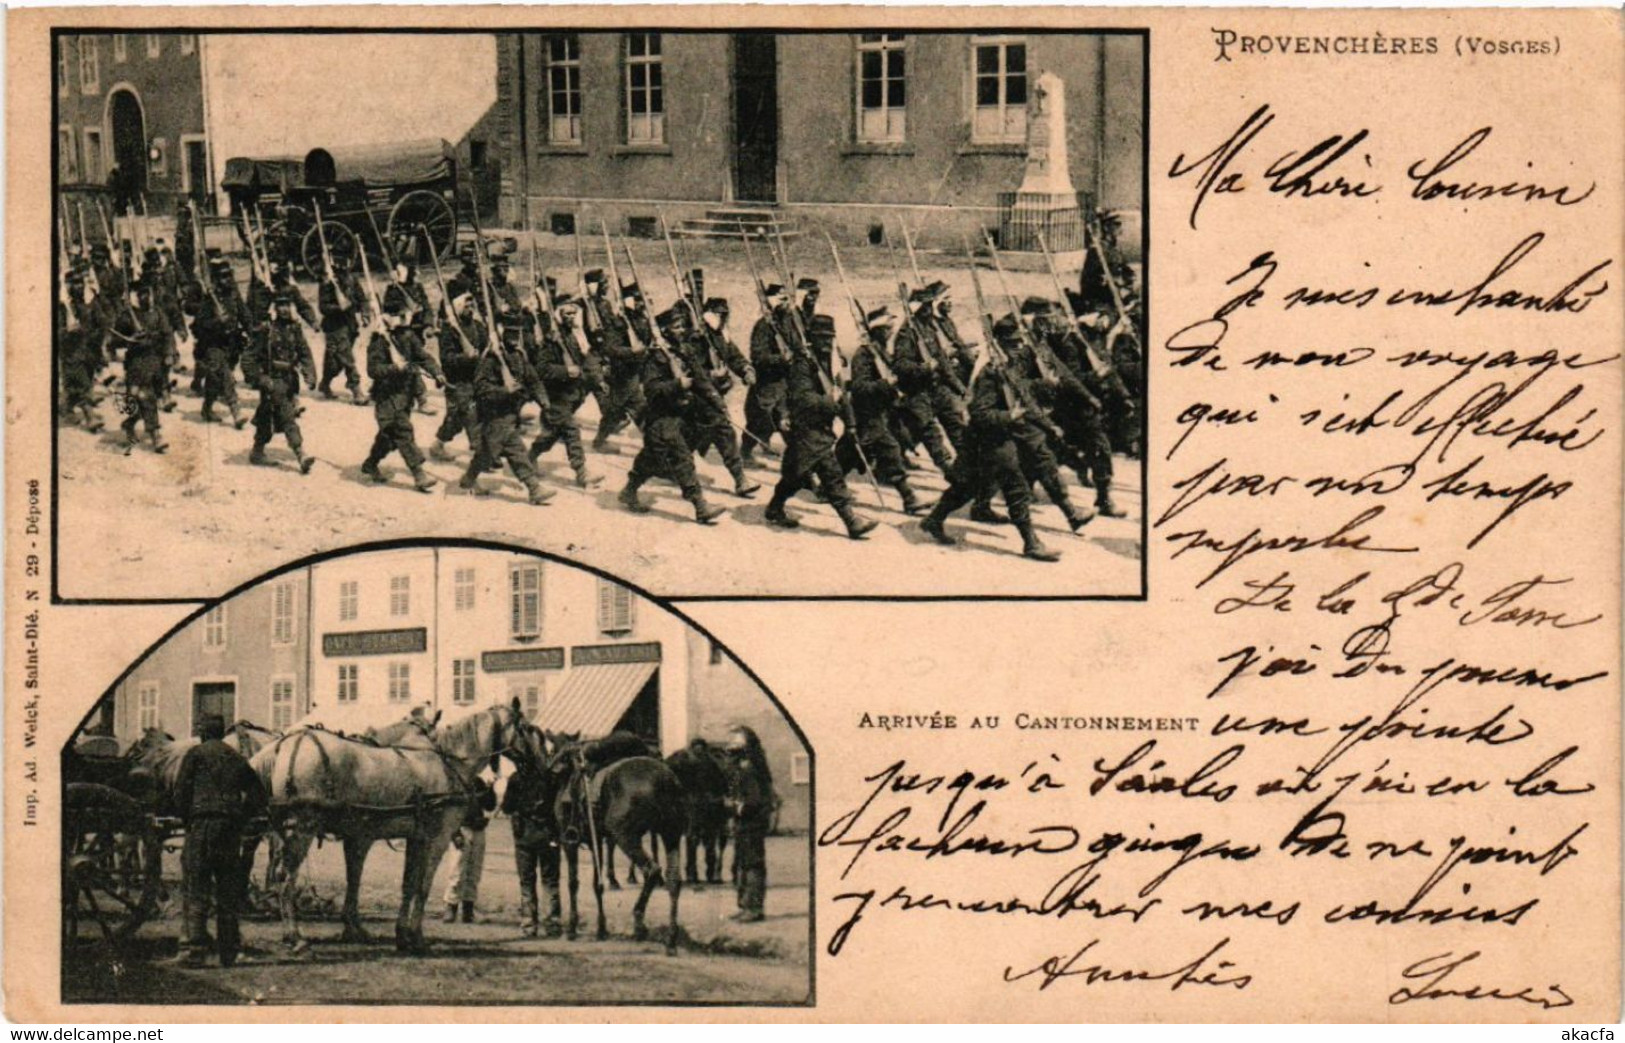 PROVENCHÈRES (VOSGES)
Ma Chère Cousine
Je suis enchanté
de mon voyage
qui s'est effectué
par un temps
superbe
De la Gde
j'ai du pousser
une pointe
jusqu'à Saales où j'ai eu la
de ne point
rencontrer mes cousins
Amitiés
ARRIVÉE AU CANTONNEMENT
Imp. Ad. Weick, Saint-Dié. N 29 - Déposé
akacfa